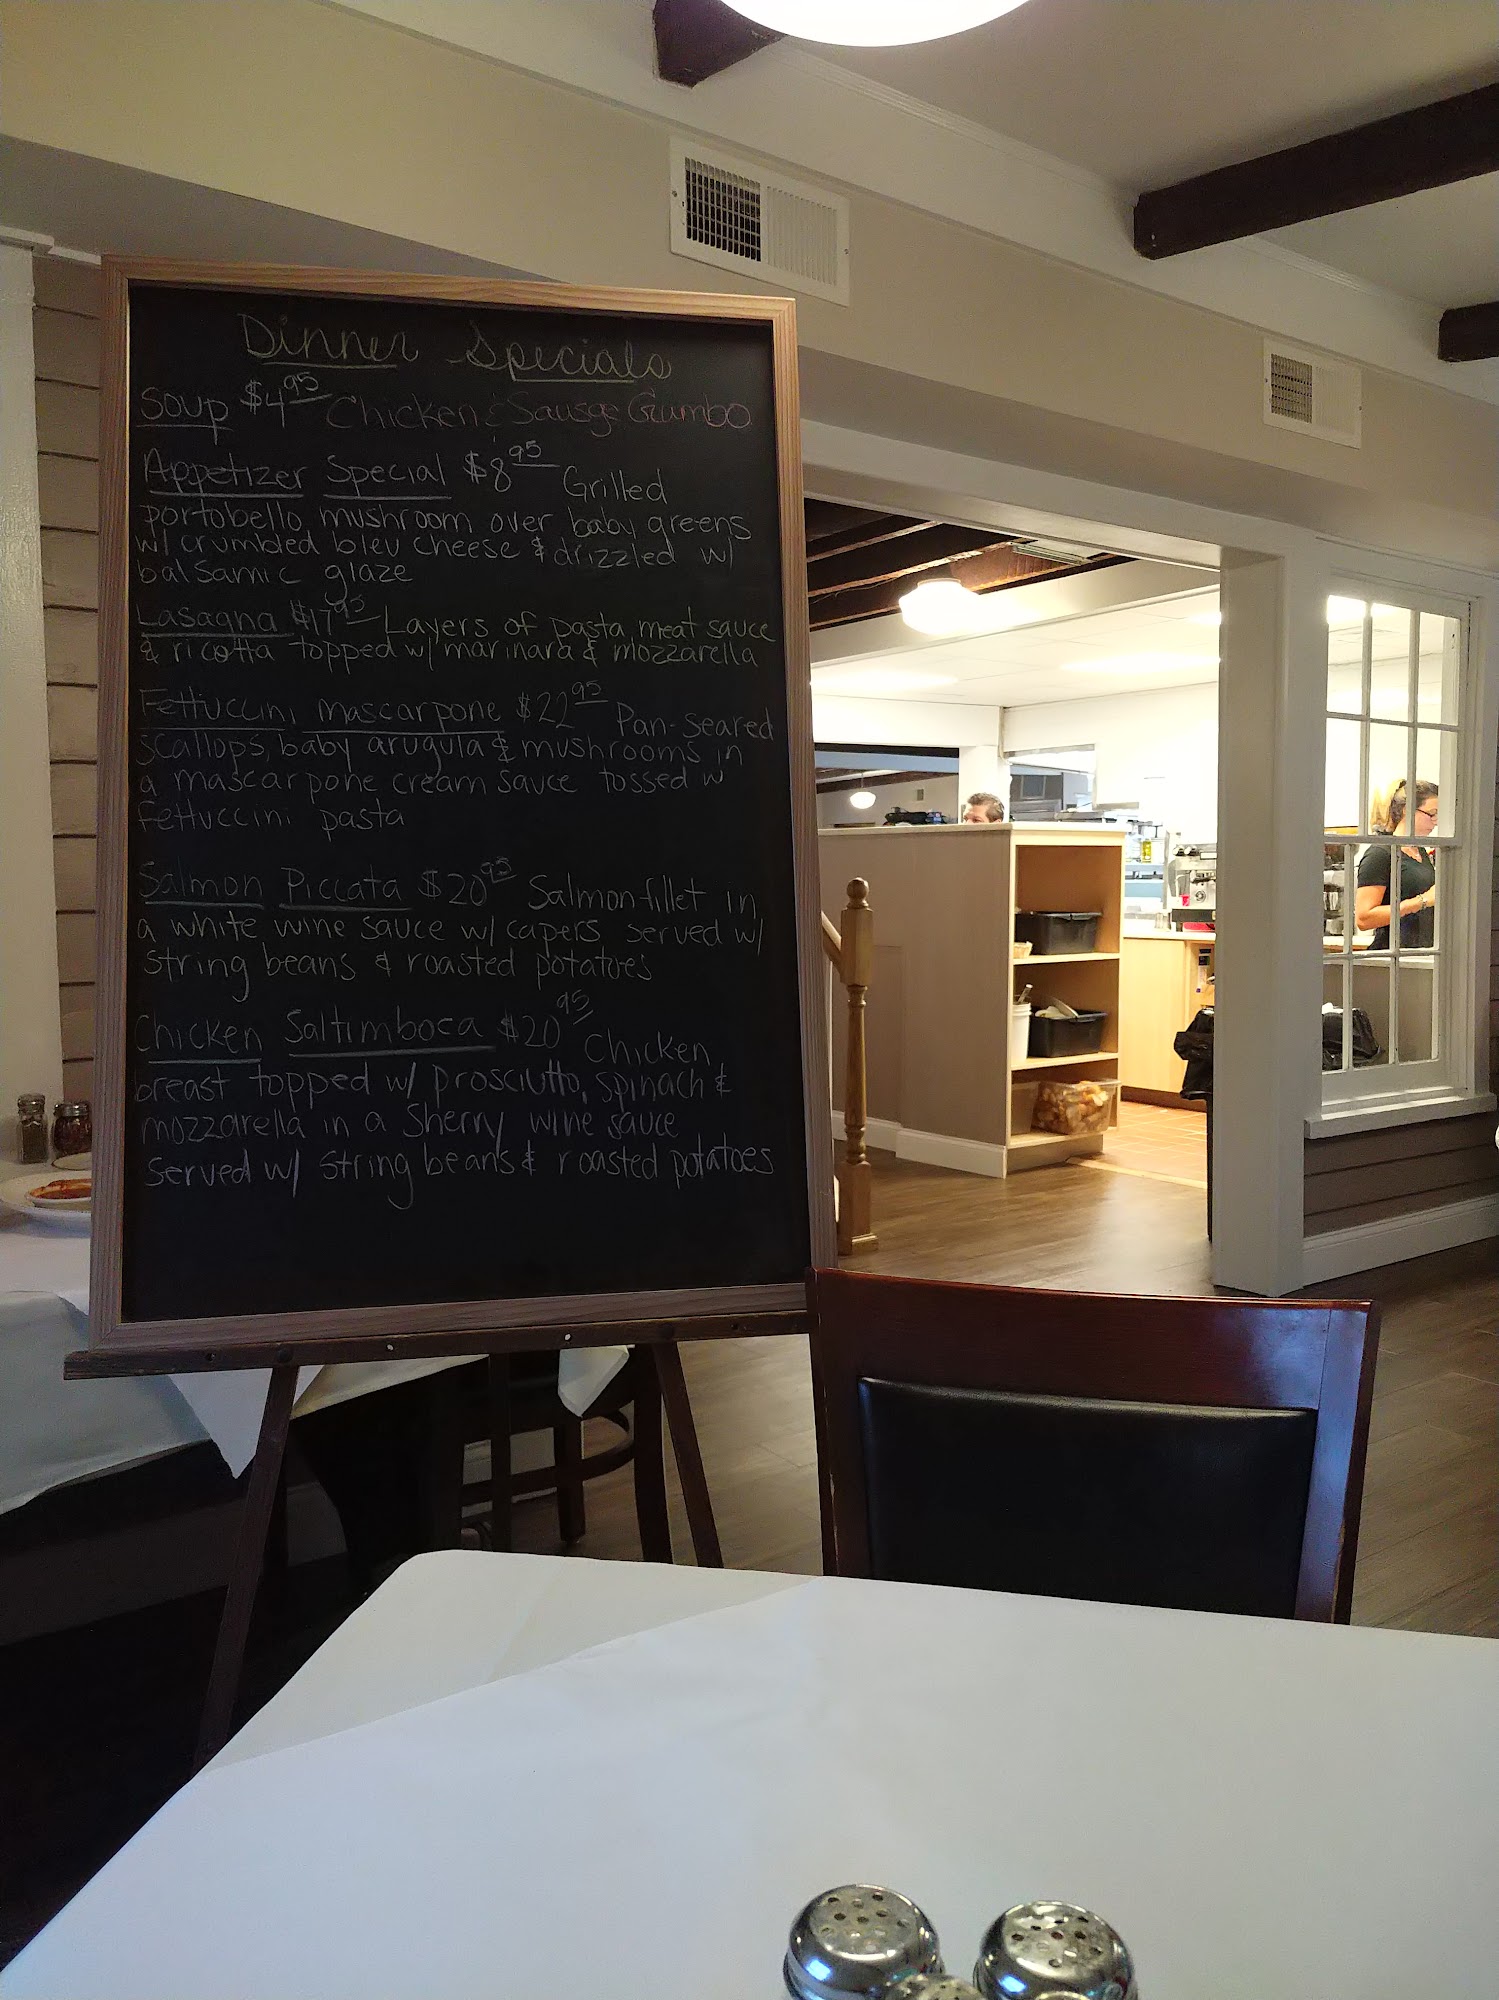 Dinner Specials
Soup $4.95 Chicken & Sausge Gumbo
Appetizer Special $8.95 Grilled
portobello mushroom over baby greens
w/ crumbled bleu cheese & drizzled w/
balsamic glaze
Lasagna $17.95 Layers of pasta, meat sauce
& ricotta topped w/ marinara & mozzarella
Fettuccini mascarpone $22.95 Pan-seared
scallops, baby arugula & mushrooms in
a mascarpone cream sauce tossed w
fettuccini pasta
Salmon Piccata $20.95 Salmon fillet in
a white wine sauce w/ capers served w/
string beans & roasted potatoes
Chicken Saltimboca $20.95 Chicken
breast topped w/ prosciutto, spinach &
mozzarella in a Sherry wine sauce
served w/ string beans & roasted potatoes